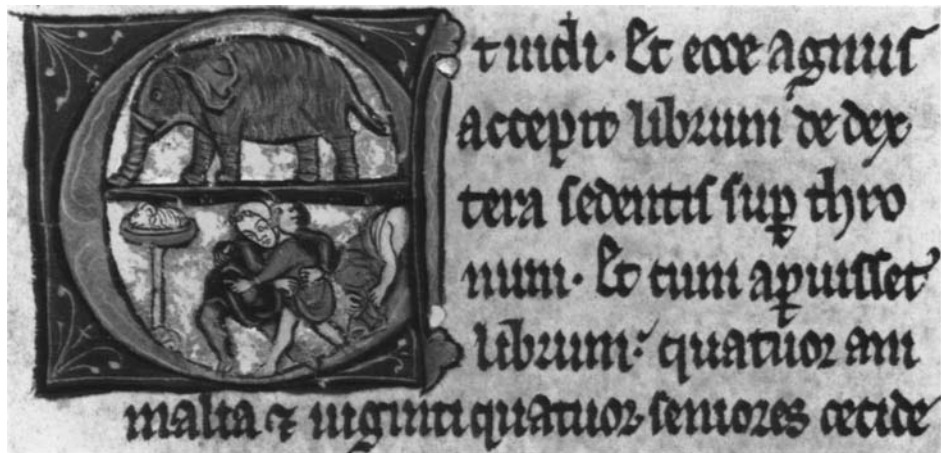 Et uidi· Et ecce agnus
accepit librum de dex
tera sedentis suꝑ thro
num· Et cum aꝑuisset
librum: quatuor ani
malia ⁊ uiginti quatuor seniores cecide